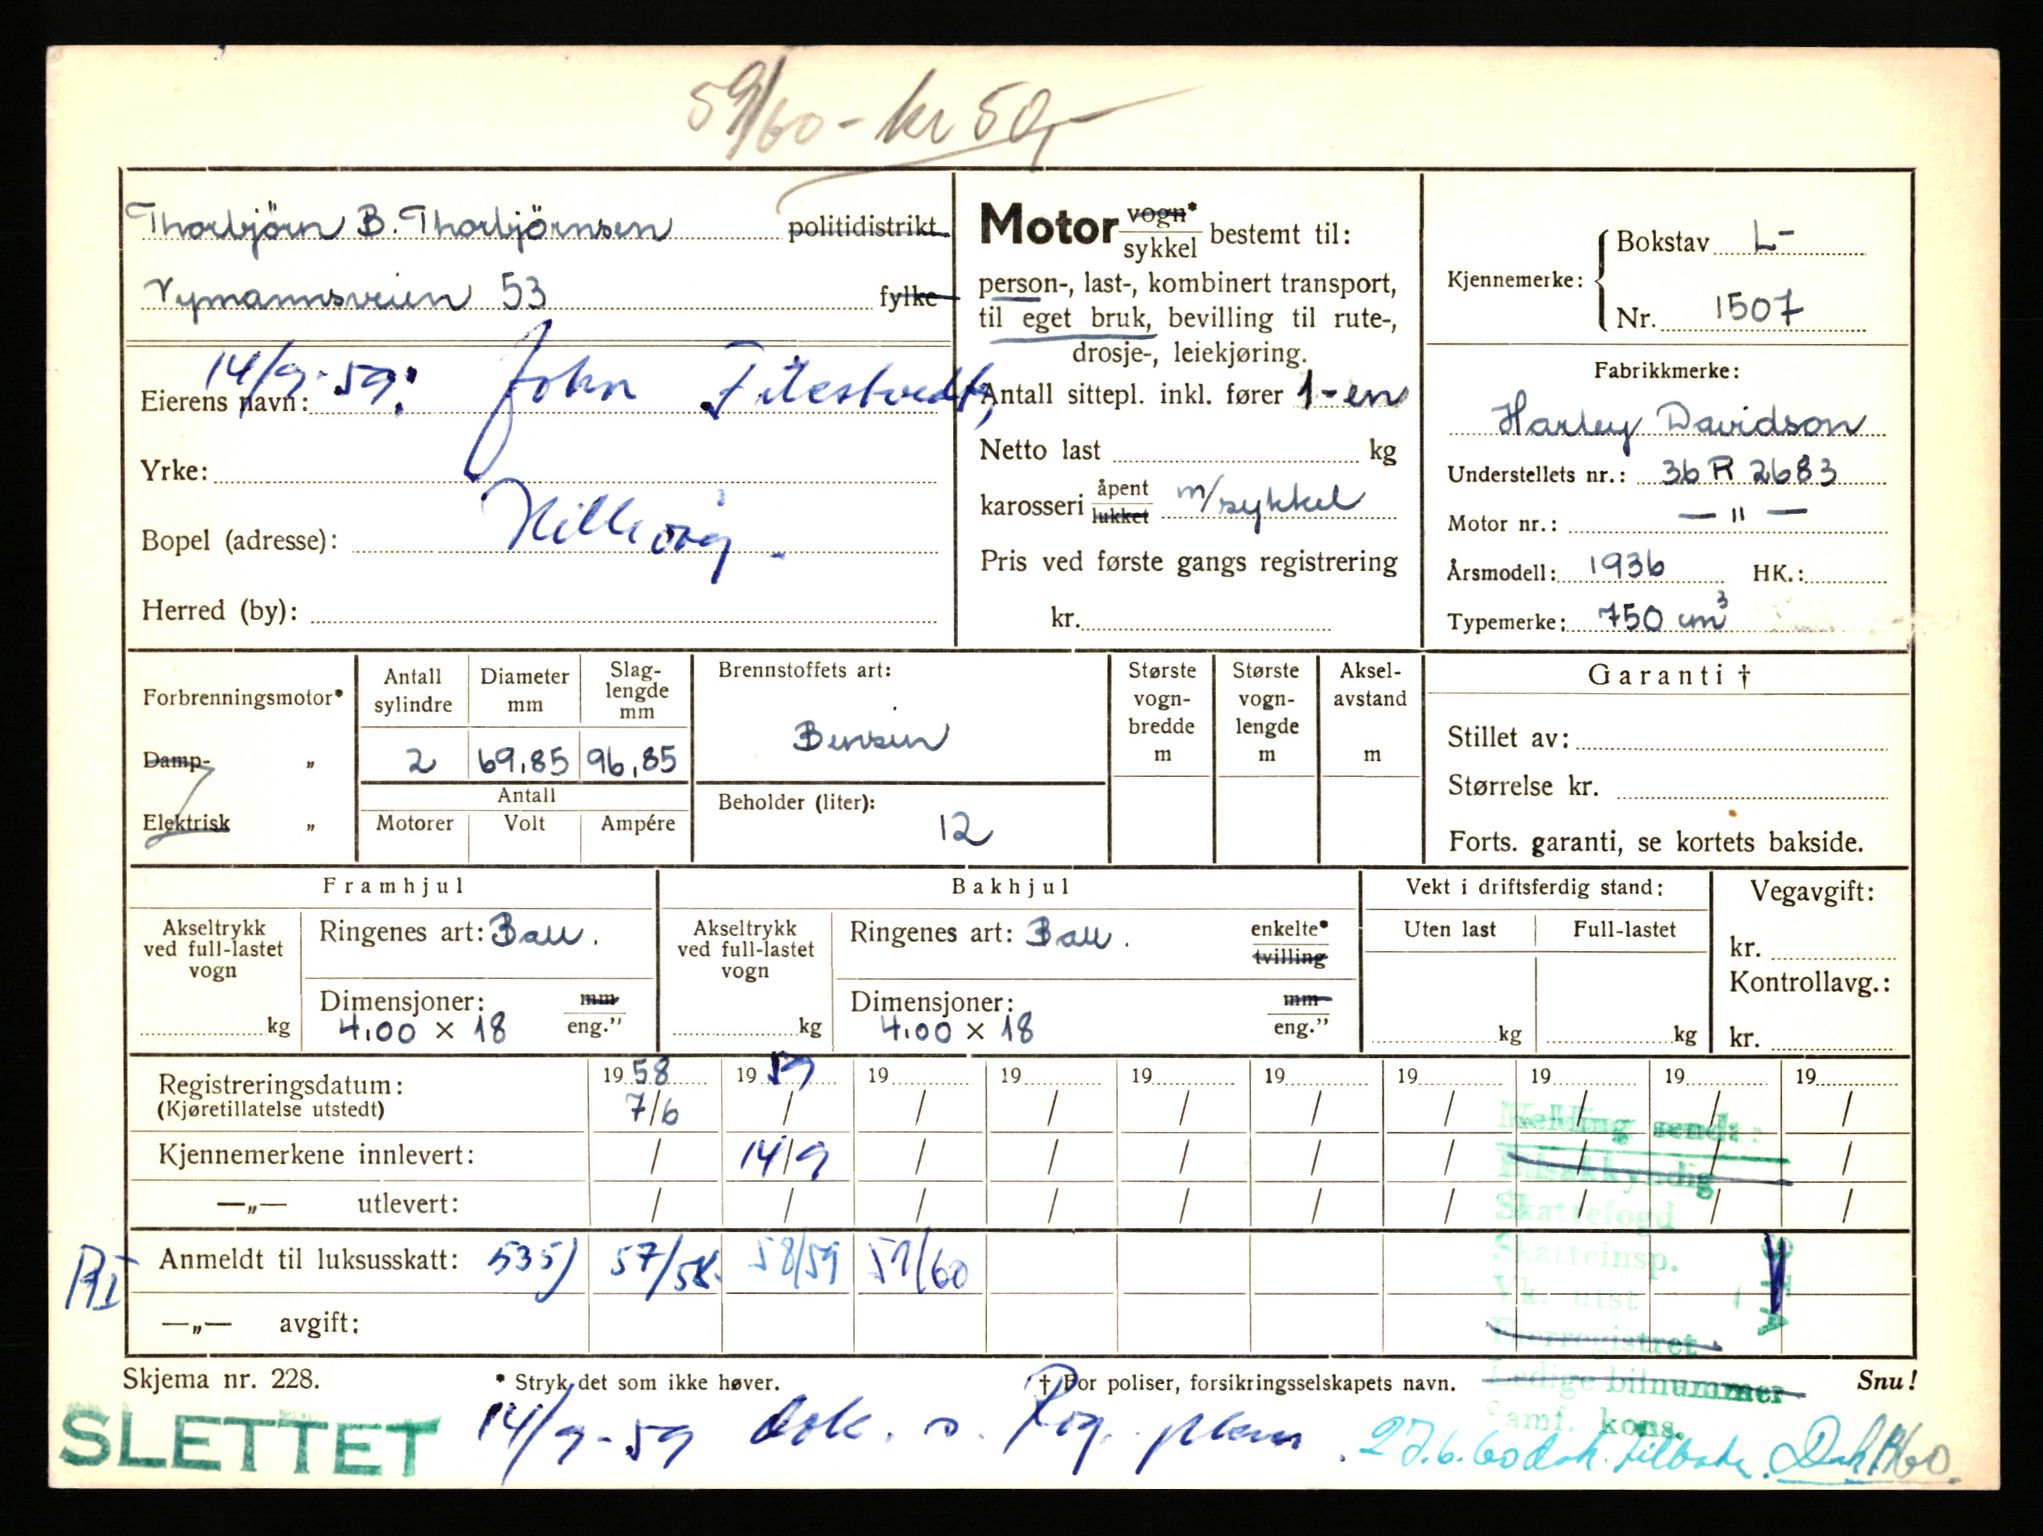 59/60 - kr 50,-
Thorbjörn B. Thorbjörnsen politidistrikt
Nymannsveien 53 fylke
14/9-59: John Fitestvedt,
Eierens navn:
Yrke:
Bopel (adresse): Hillevåg.
Herred (by):
Motor vogn* / sykkel bestemt til:
person-, last-, kombinert transport,
til eget bruk, bevilling til rute-,
drosje-, leiekjøring.
Antall sittepl. inkl. fører 1-en
Netto last kg
karosseri åpent / lukket m/sykkel
Pris ved første gangs registrering
kr.
Kjennemerke: Bokstav L-
Nr. 1507
Fabrikkmerke:
Harley Davidson
Understellets nr.: 36 R 2683
Motor nr.: — " —
Årsmodell: 1936 HK.:
Typemerke: 750 cm³
Forbrenningsmotor*
Damp- „
Elektrisk „
Antall sylindre Diameter mm Slag-lengde mm
2 69,85 96,85
Antall
Motorer Volt Ampére
Brennstoffets art:
Bensin
Beholder (liter):
12
Største vogn-bredde m
Største vogn-lengde m
Aksel-avstand m
Garanti †
Stillet av:
Størrelse kr.
Forts. garanti, se kortets bakside.
Framhjul
Akseltrykk ved full-lastet vogn
kg
Ringenes art: Ball.
Dimensjoner: mm / eng."
4.00 × 18
Bakhjul
Akseltrykk ved full-lastet vogn
kg
Ringenes art: Ball. enkelte* / tvilling
Dimensjoner: mm / eng."
4.00 × 18
Vekt i driftsferdig stand:
Uten last Full-lastet
kg kg
Vegavgift:
kr.
Kontrollavg.:
kr.
Registreringsdatum: 1958 1959 19 19 19 19 19 19 19 19
(Kjøretillatelse utstedt) 7/6 / / / / / / / / /
Kjennemerkene innlevert: / 14/9 / / / / / / / /
—„— utlevert: / / / / / / / / / /
Anmeldt til luksusskatt: 535) 57/58. 58/59 59/60
—„— avgift:
Melding sendt:
Bilsakkyndig
Skattefogd
Skatteinsp.
Vk. utst
Ledige bilnummer
Samf. kons.
Skjema nr. 228. * Stryk det som ikke høver. † For poliser, forsikringsselskapets navn. Snu!
SLETTET
14/9-59 dok. s. Rog. plan.
27.6.60 dok. tilbake.